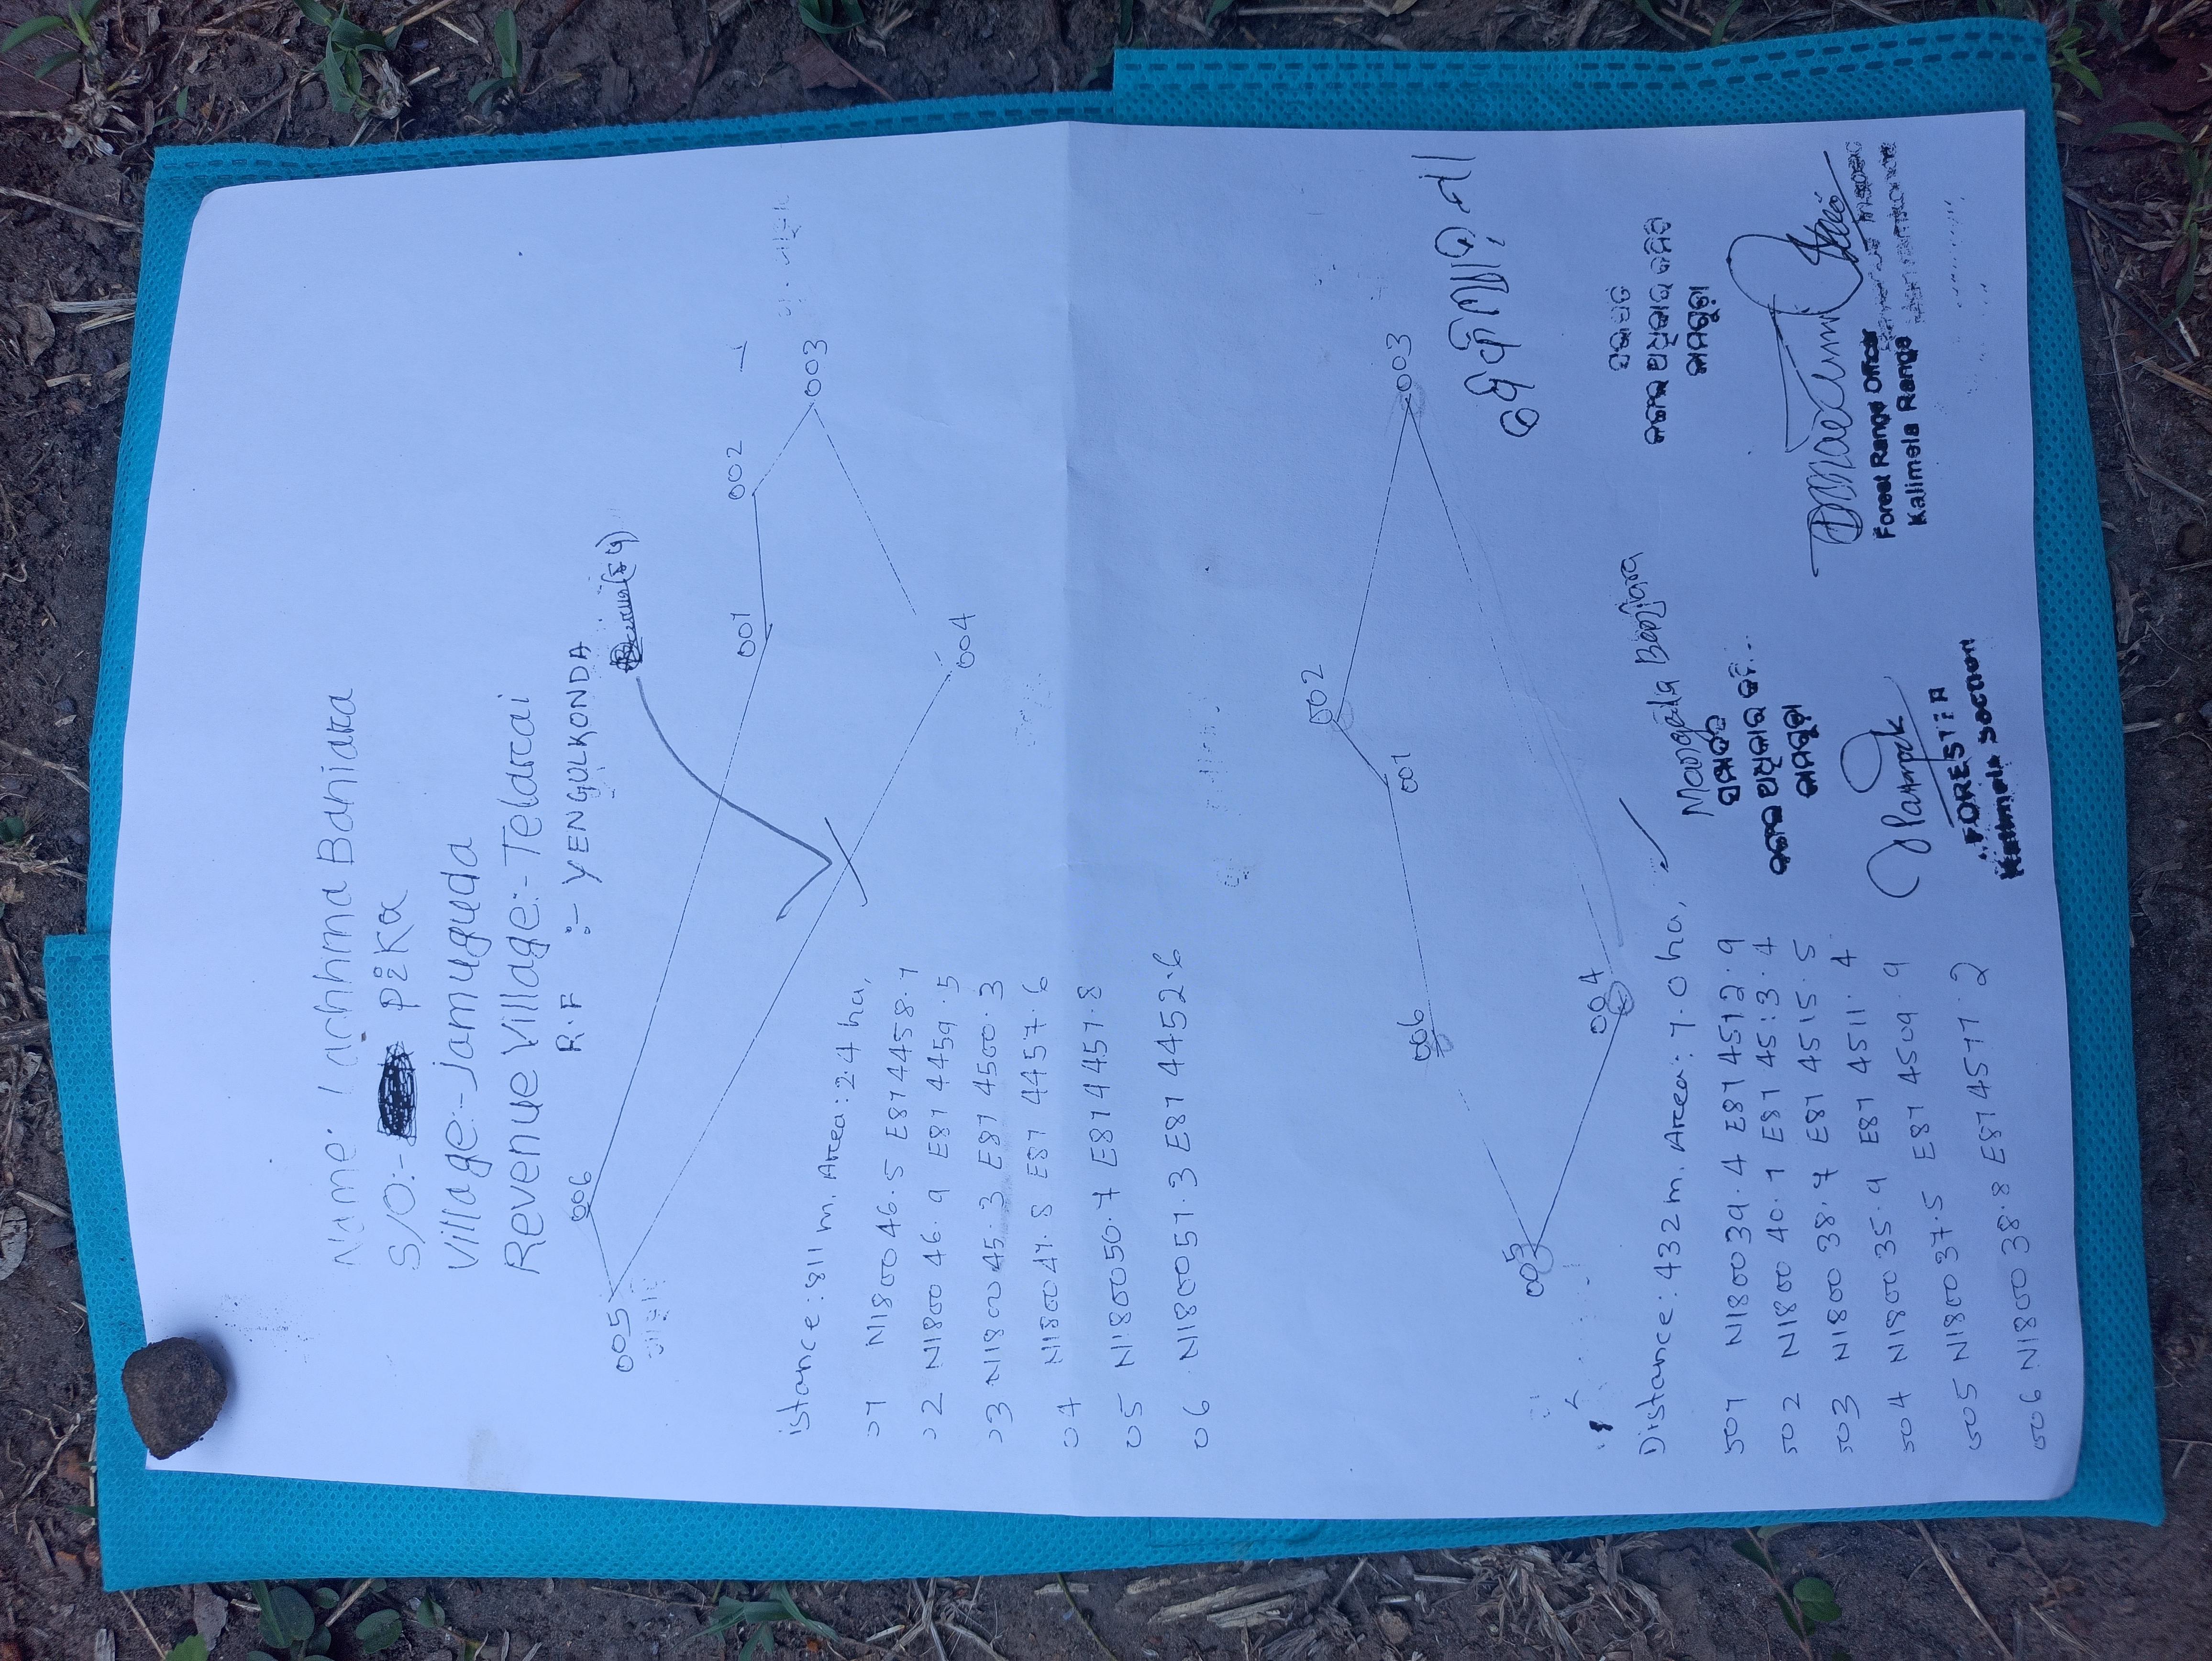 Name: Lachhma Baniara
S/O:- Pika
Village:- Jamuguda
Revenue Village:- Telarai
R.F :- YENGULKONDA
006
005
001
002
003
004
istance: 811 m. Area: 2.4 ha,
01 N180046.5 E814458.1
02 N180046.9 E814459.5
03 N180045.3 E814500.3
04 N180041.8 E814457.6
05 N180050.7 E814451.8
06 N180051.3 E814452.6
002
003
001
006
004
005
Distance: 432 m. Area: 1.0 ha,
001 N180039.4 E814512.9
002 N180040.1 E814513.4
003 N180038.7 E814515.5
004 N180035.9 E814511.4
005 N180037.5 E814509.9
006 N180038.8 E814511.2
Mangala
ସଭାପତି
ଜଙ୍ଗଲ ଅଧିକାର କମିଟି
ଜାମୁଗୁଡା
FORESTER
Kalimela Section
Forest Range Officer
Kalimela Range